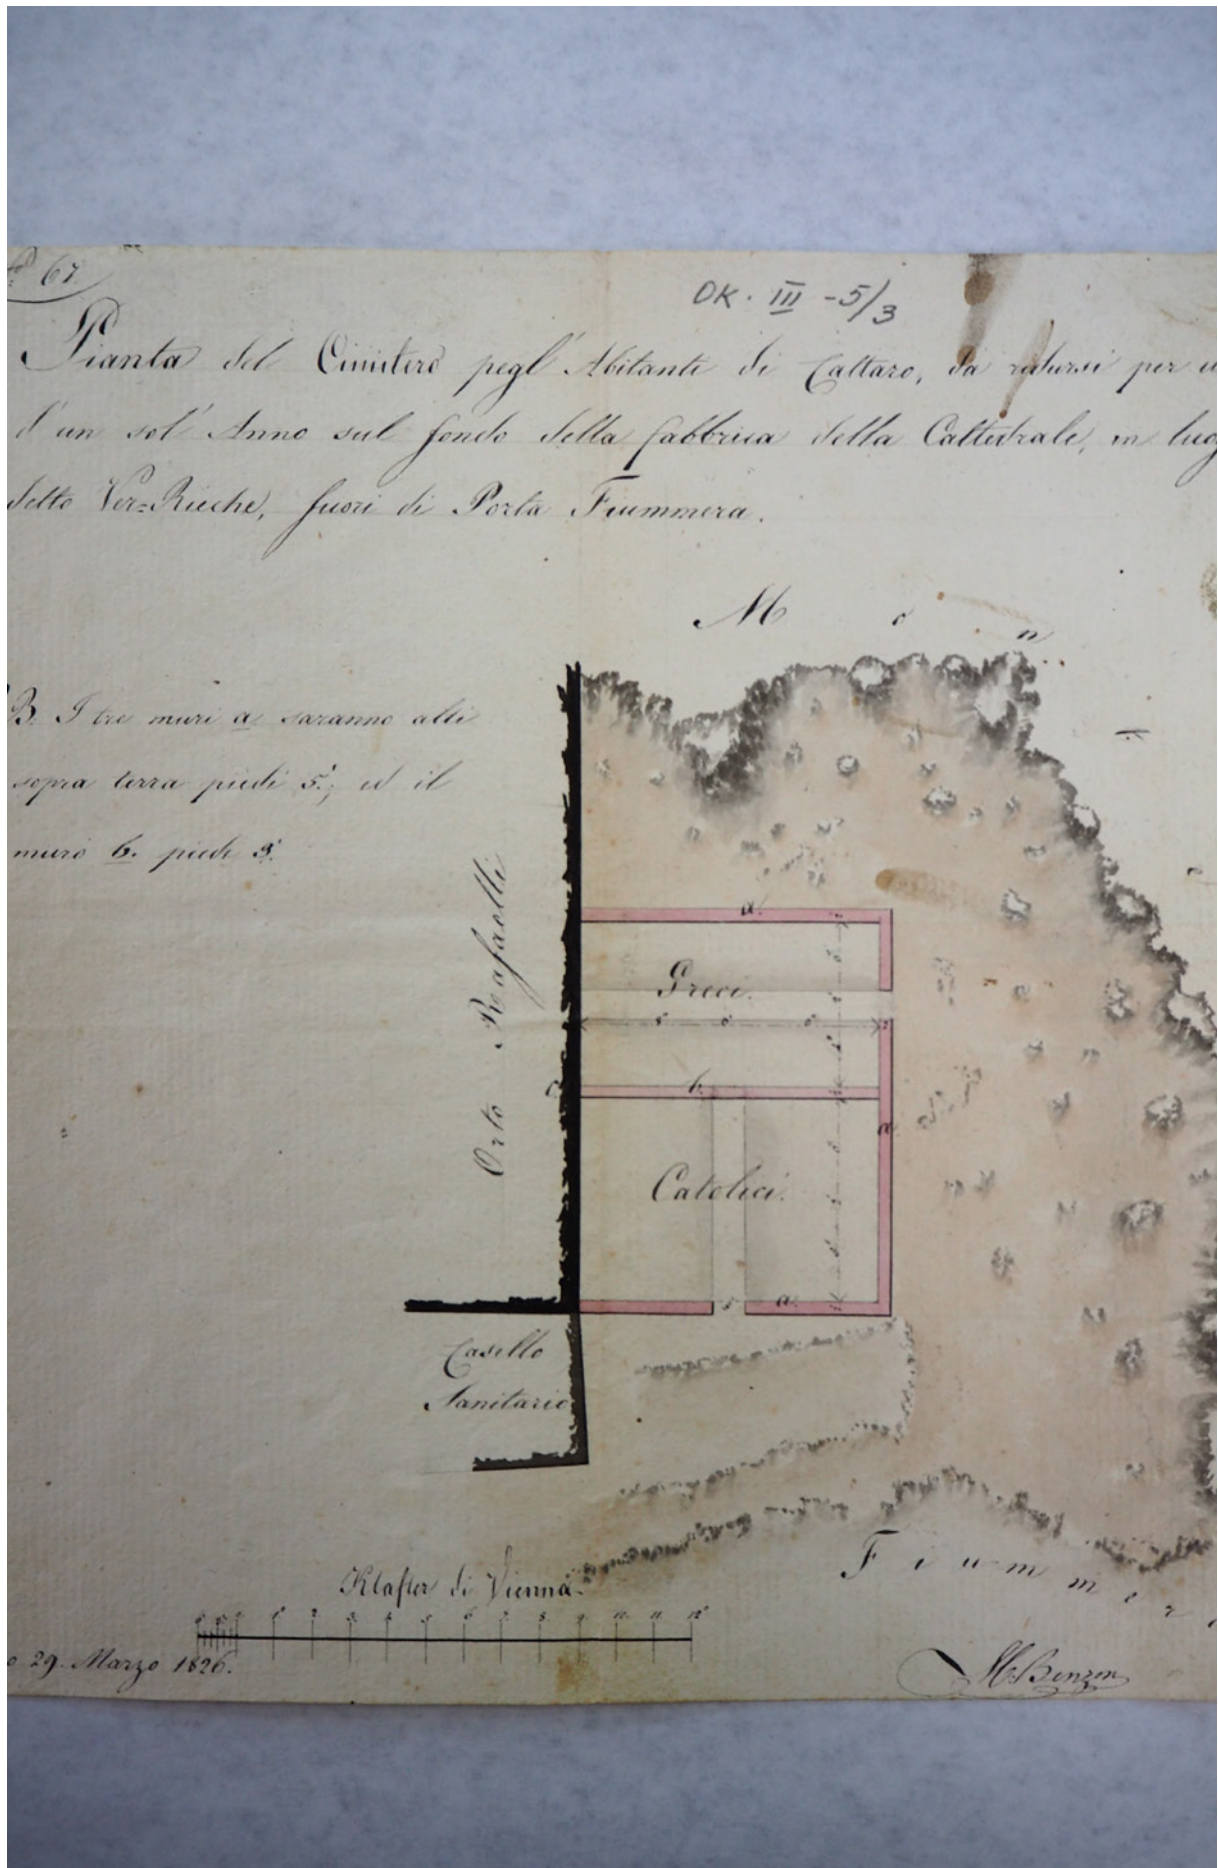 67.
OK. III - 5/3
Pianta del Cimitero pegl' Abitanti di Cattaro, da ridursi per u
d'un sol' Anno sul fondo della fabbrica della Cattedrale, in luog
detto Ver=Rieche, fuori di Porta Fiummera.
M o n t
B. I tre muri a saranno alti
sopra terra piedi 5'; ed il
muro b. piedi 3'.
Orto Rafaelli
a.
Greci.
b.
c
a.
Catolici.
a.
Casello
Sanitario
Fiummera
Klafter di Vienna.
1 2 3 4 5 6 7 8 9 10 11 12
o 29. Marzo 1826.
M. Benzon